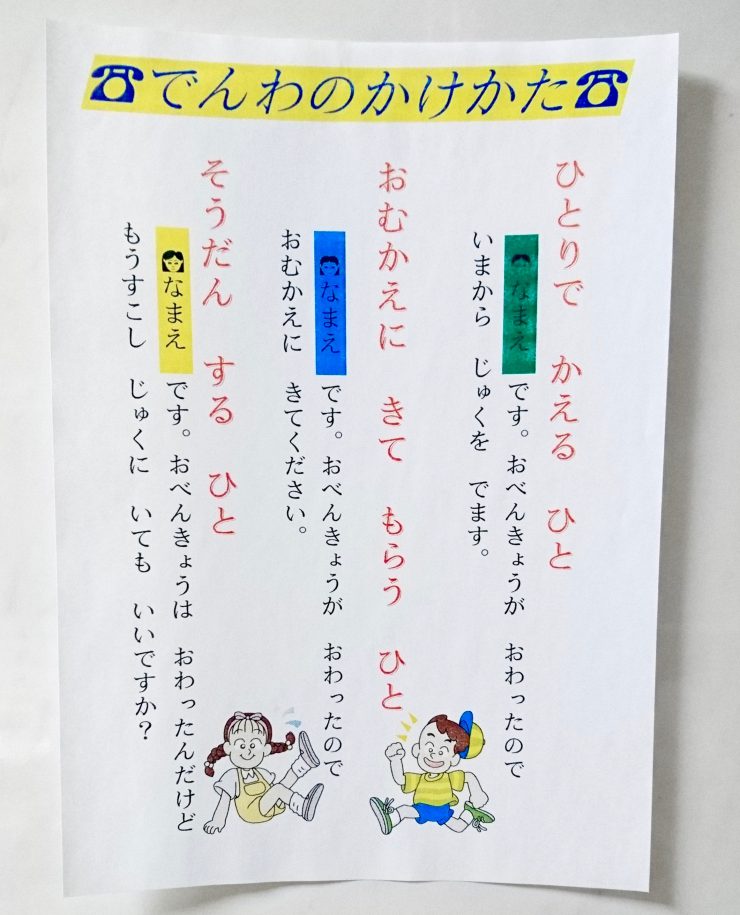 ☎でんわのかけかた☎
ひとりで かえる ひと
なまえ です。おべんきょうが おわったので
いまから じゅくを でます。
おむかえに きて もらう ひと
なまえ です。おべんきょうが おわったので
おむかえに きてください。
そうだん する ひと
なまえ です。おべんきょうは おわったんだけど
もうすこし じゅくに いても いいですか？